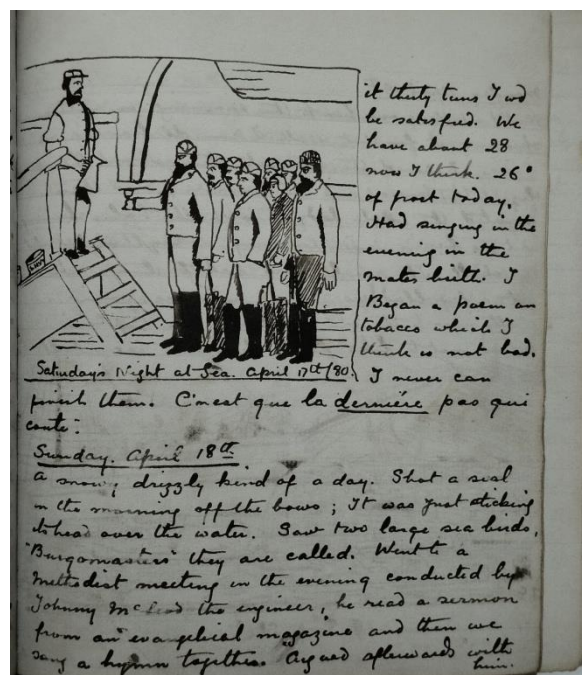 it thirty tuns I wd
be satisfied. We
have about 28
now I think. 26°
of frost today.
Had singing in the
evening in the
mates birth. I
Began a poem on
tobacco which I
think is not bad.
I never can
Saturday's Night at Sea. April 17th/80.
finish them. C'nest que la derniére pas qui
coute.
Sunday. April 18th.
A snowy drizzly kind of a day. Shot a seal
in the morning off the bows; It was just sticking
its head over the water. Saw two large sea birds,
"Burgomasters" they are called. Went to a
Methodist meeting in the evening conducted by
Johnny McLeod the engineer, he read a sermon
from an evangelical magazine and then we
sang a hymn together. Argued afterwards with
him.